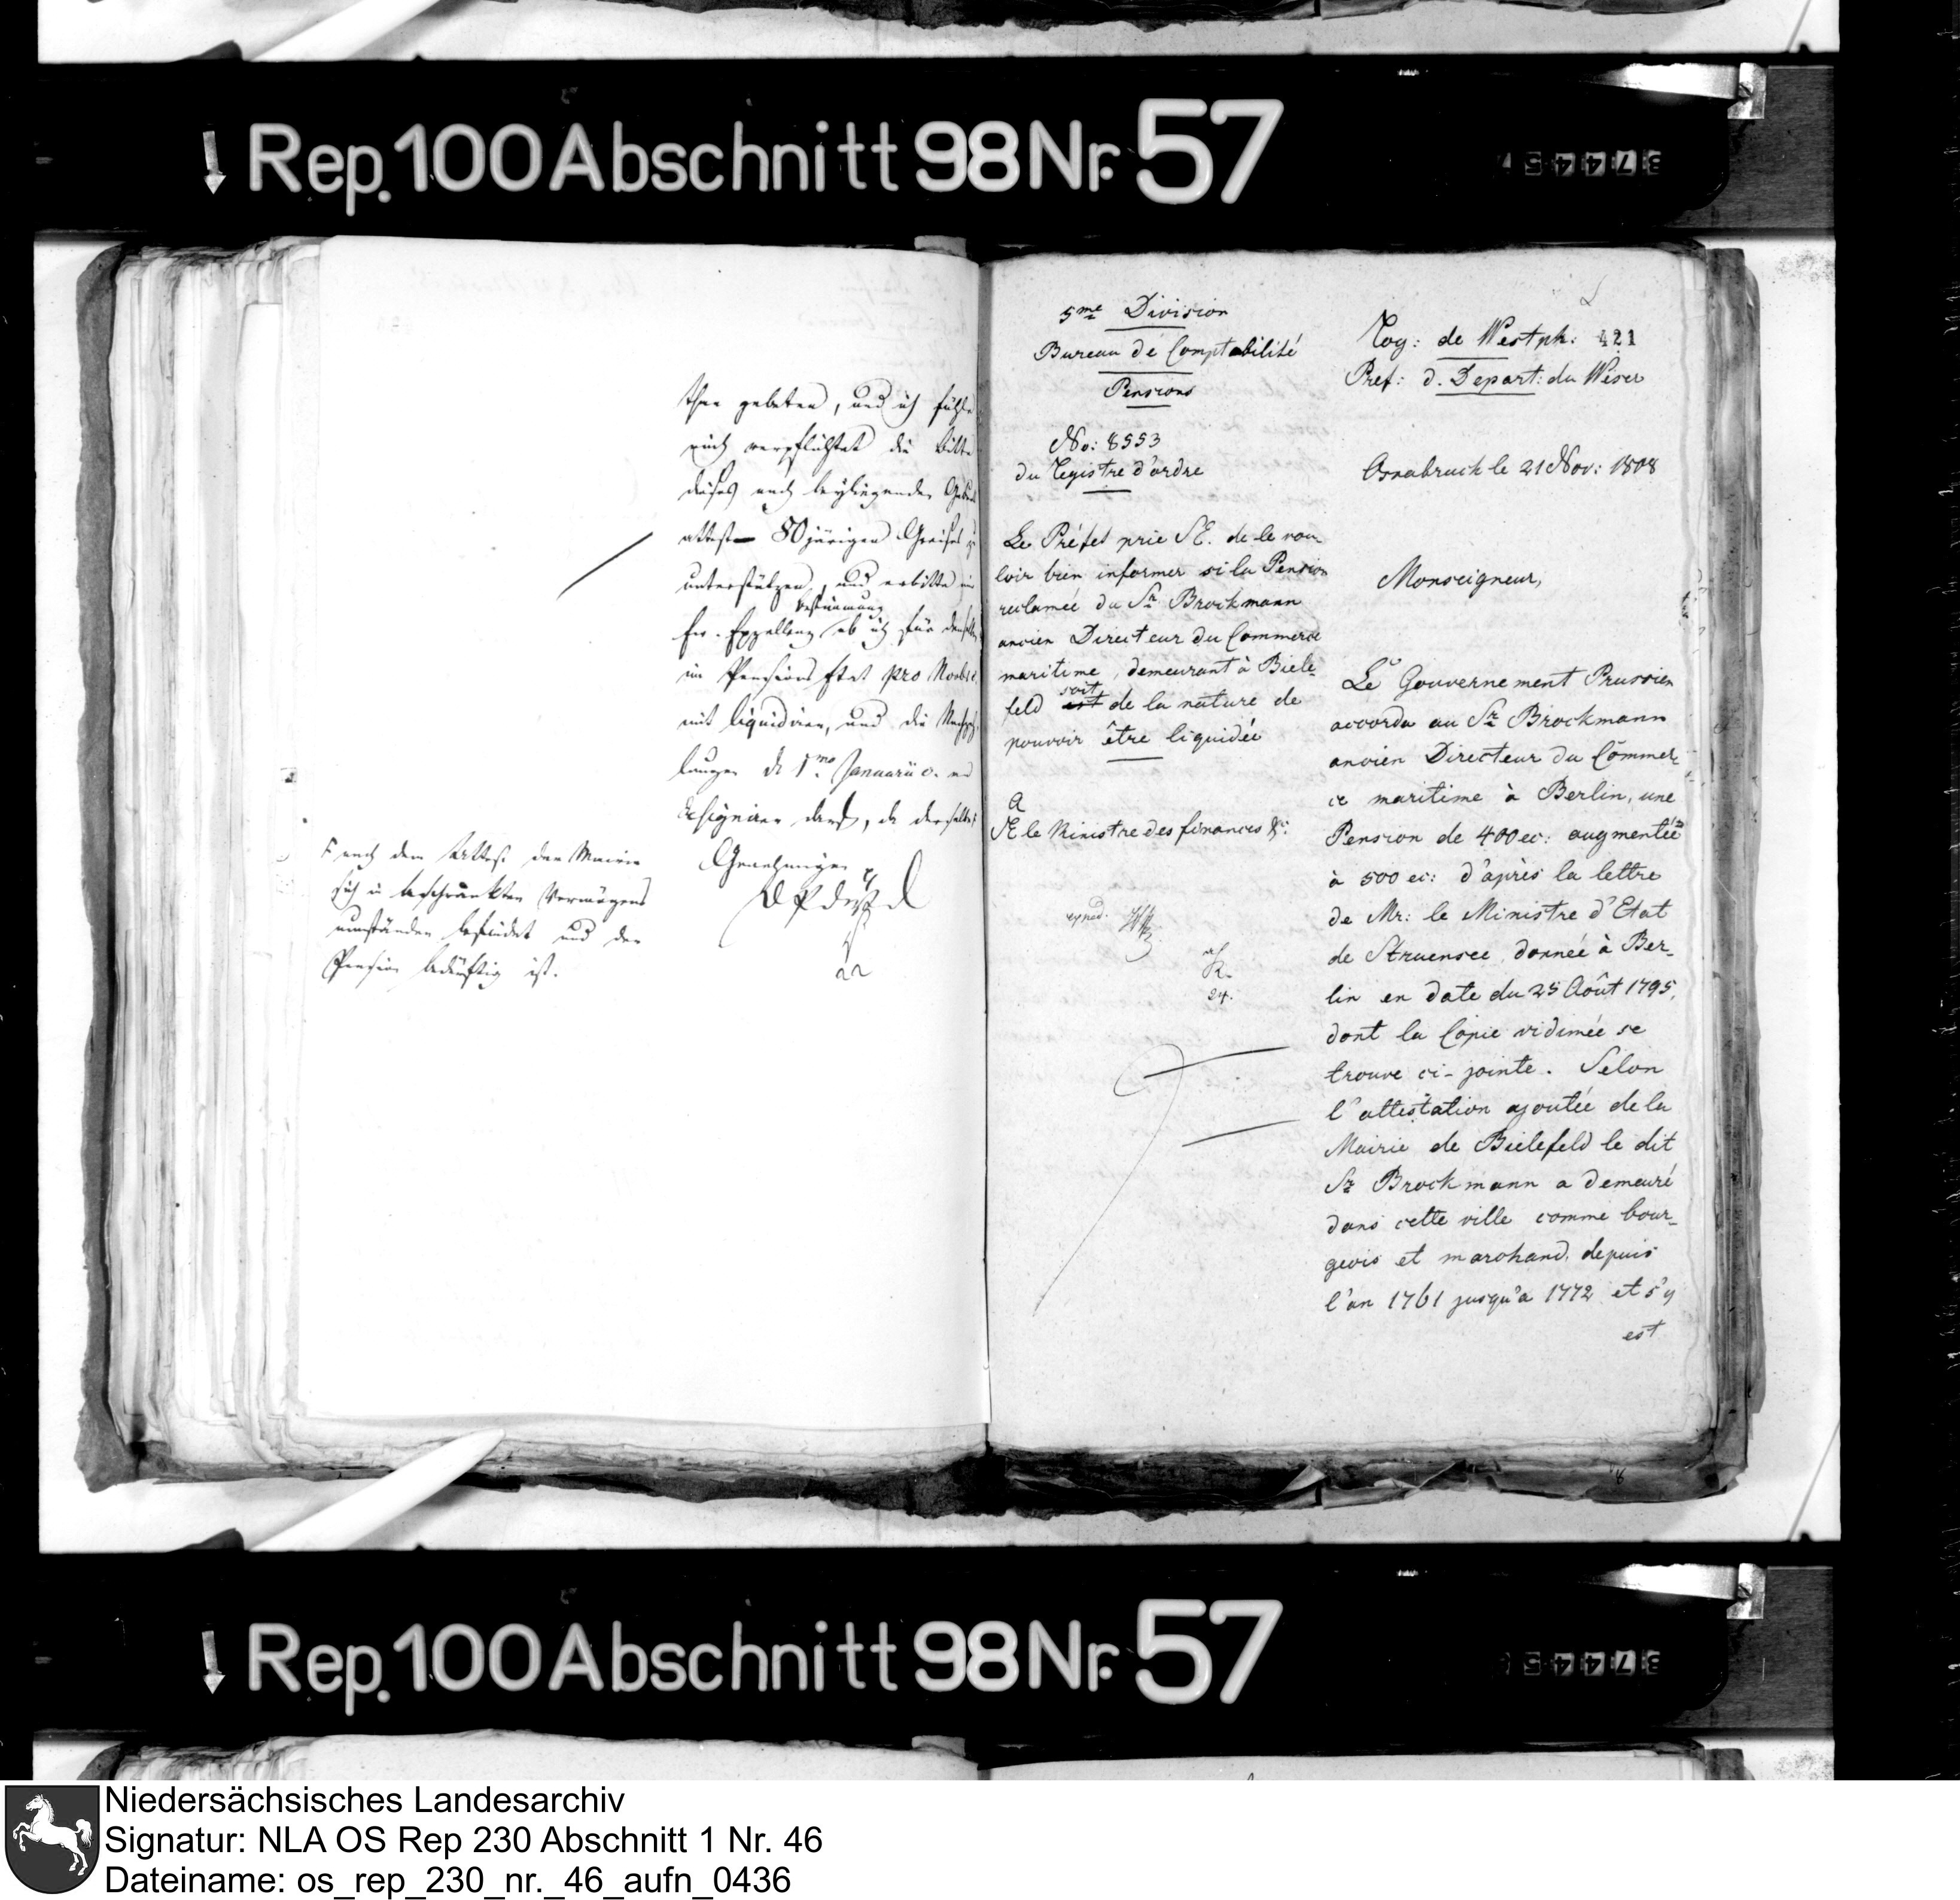 Rep. 100 Abschnitt 98 Nr. 57
374457
then gebeten, und ich fühle
mich verpflichtet die Bitte
dieses nach beyliegenden
attest 80 jährigen Greises zu
unterstützen, und erbitte mir
Bestimmung
Ew. Exzellenz ob ich für denselben
im Pensions Etat pro Novbr. c.
mit liquidiren, und die
vom 1mo Januarii c. an
designiren darf, da derselbe
Genehmigen
F nach dem Attest der Mairie
sich in beschränkten Vermögens
umständen befindet und der
Pension bedürftig ist.
22
5me Division
Bureau de Comptabilité
Pensions
No: 8553
du Registre d'ordre
Le Préfet prie S.E. de le vou
loir bien informer si la Pension
reclamée du Sr. Brockmann
ancien Directeur du Commerce
maritime, demeurant à Biele-
soit
feld est de la nature de
pouvoir être liquidée
a
S.E. le Ministre des finances &c:
exped.
24.
Roy: de Westph: 421
Pref: d. Depart: du Weser
Osnabruck le 21 Nov: 1808
Monseigneur,
Le Gouvernement Prussien
accorda au Sr. Brockmann
ancien Directeur du Commer-
ce maritime à Berlin, une
Pension de 400 ec: augmentée
à 500 ec: d'après la lettre
de Mr: le Ministre d'Etat
de Struensee, donnée à Ber-
lin en date du 25 Août 1795,
dont la Copie vidimée se
trouve ci-jointe. Selon
l'attestation ajoutée de la
Mairie de Bielefeld le dit
Sr. Brockmann a demeuré
dans cette ville comme bour-
geois et marchand, depuis
l'an 1761 jusqu'a 1772 et s'y
est
Rep. 100 Abschnitt 98 Nr. 57
Niedersächsisches Landesarchiv
Signatur: NLA OS Rep 230 Abschnitt 1 Nr. 46
Dateiname: os_rep_230_nr._46_aufn_0436